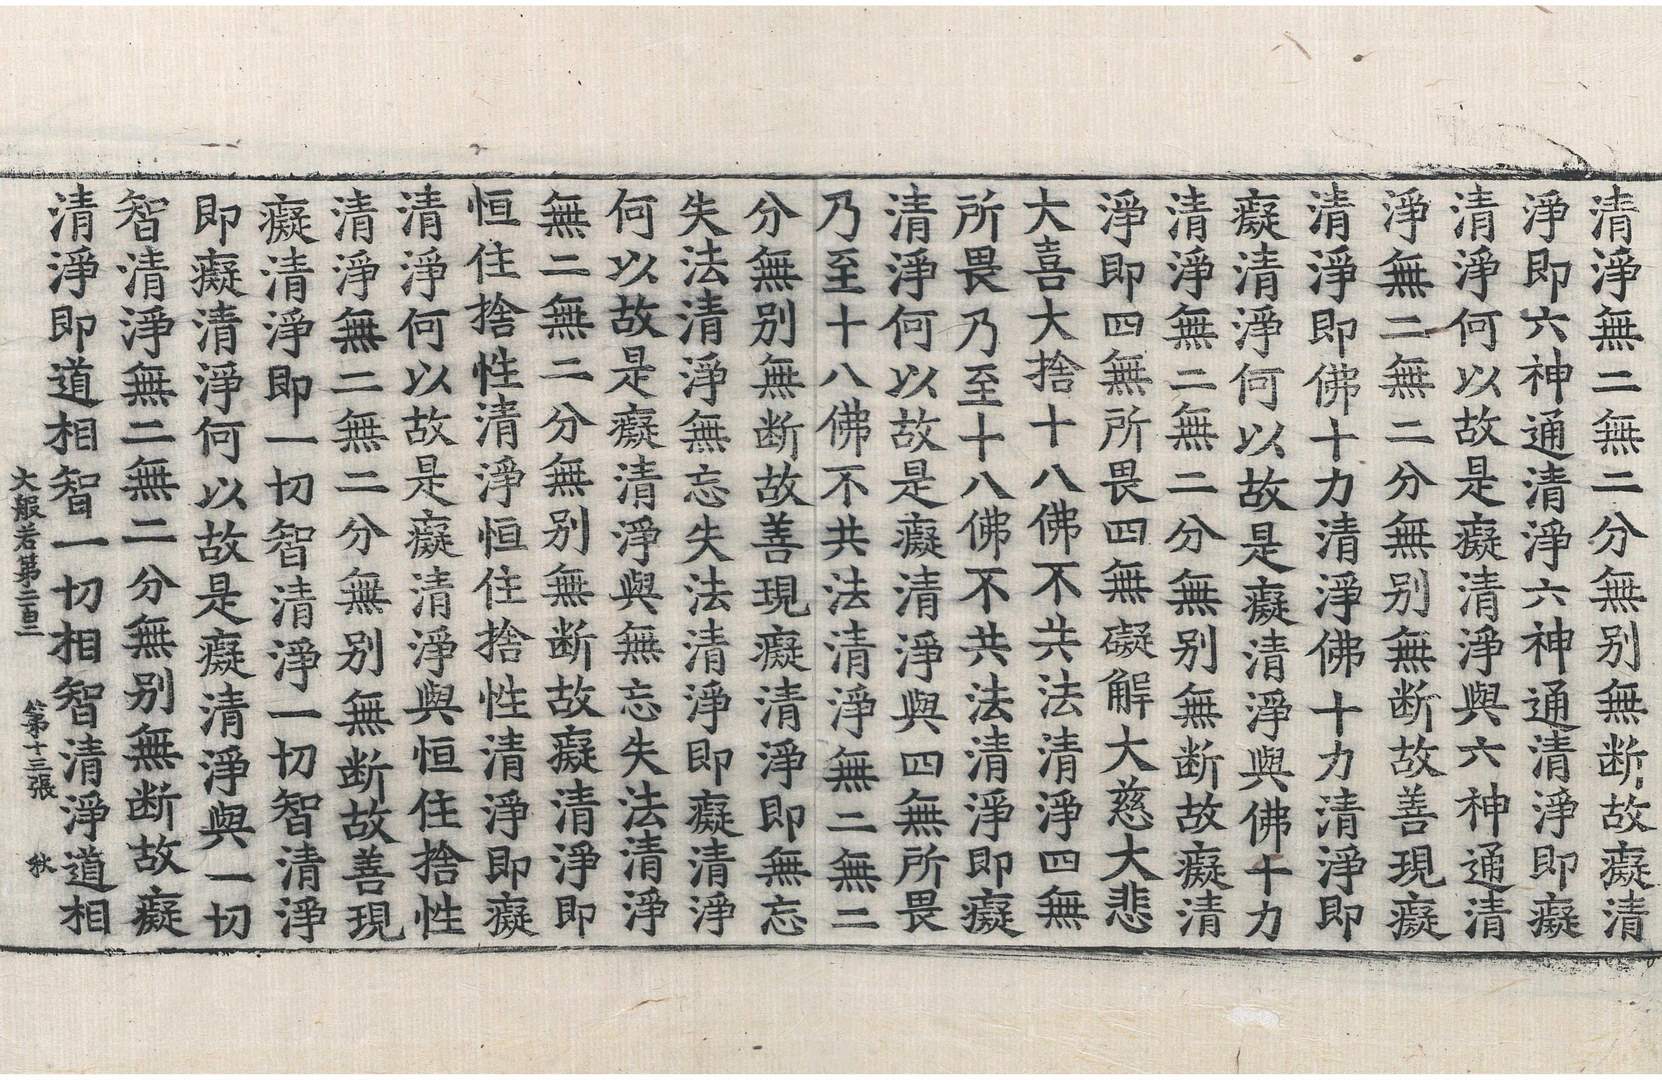 清淨無二無二分無別無断故癡清
淨即六神通清淨六神通清淨即癡
清淨何以故是癡清淨與六神通清
淨無二無二分無別無断故善現癡
清淨即佛十力清淨佛十力清淨即
癡清淨何以故是癡清淨與佛十力
清淨無二無二分無別無断故癡清
淨即四無所畏四無礙解大慈大悲
大喜大捨十八佛不共法清淨四無
所畏乃至十八佛不共法清淨即癡
清淨何以故是癡清淨與四無所畏
乃至十八佛不共法清淨無二無二
分無別無断故善現癡清淨即無忘
失法清淨無忘失法清淨即癡清淨
何以故是癡清淨與無忘失法清淨
無二無二分無別無断故癡清淨即
恒住捨性清淨恒住捨性清淨即癡
清淨何以故是癡清淨與恒住捨性
清淨無二無二分無別無断故善現
癡清淨即一切智清淨一切智清淨
即癡清淨何以故是癡清淨與一切
智清淨無二無二分無別無断故癡
清淨即道相智一切相智清淨道相
大般若第二百二 第十三張 秋